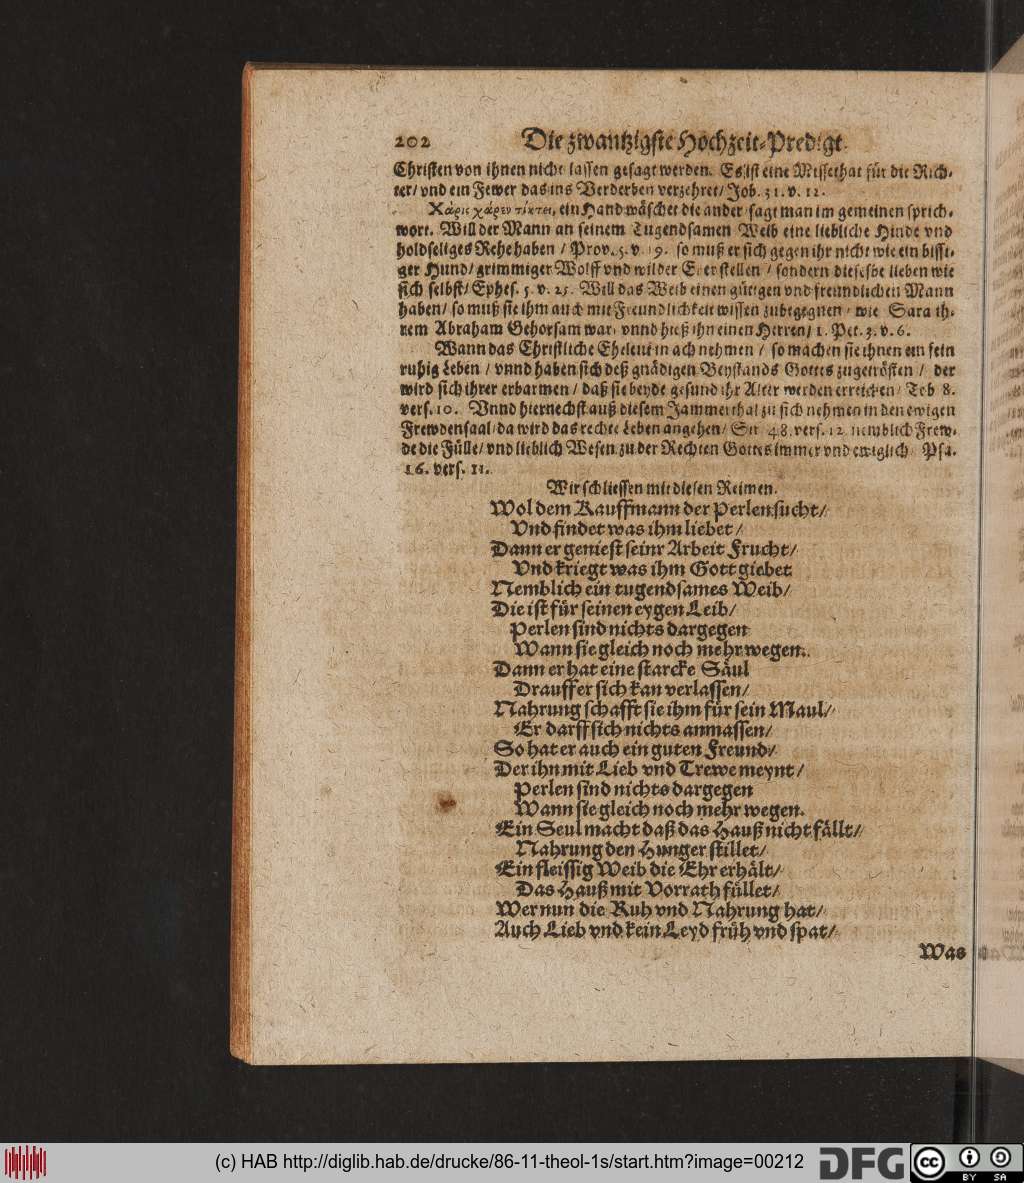 202 Die zwantzigste Hochzeit-Predigt.
Christen von ihnen nicht lassen gesagt werden. Es ist eine Missethat für die Rich-
ter/ vnd ein Fewer das ins Verderben verzehret/ Job. 31. v. 12.
Χάρις χάριν τίκτει, ein Hand wäschet die ander/ sagt man im gemeinen sprich-
wort. Will der Mann an seinem Tugendsamen Weib eine liebliche Hinde vnd
holdseliges Rehe haben / Prov. 5. v. 19. so muß er sich gegen ihr nicht wie ein bissi-
ger Hund/ grimmiger Wolff vnd wilder Eber stellen / sondern dieselbe lieben wie
sich selbst/ Ephes. 5. v. 25. Will das Weib einen gütigen vnd freundlichen Mann
haben/ so muß sie ihm auch mit Freundlichkeit wissen zubegegnen/ wie Sara ih-
rem Abraham Gehorsam war/ vnnd hieß ihn einen Herren/ 1. Pet. 3. v. 6.
Wann das Christliche Eheleut in acht nehmen / so machen sie ihnen ein fein
ruhig Leben / vnnd haben sich deß gnädigen Beystands Gottes zugetrösten / der
wird sich ihrer erbarmen / daß sie beyde gesund ihr Alter werden erreichen/ Tob 8.
vers. 10. Vnnd hiernechst auß diesem Jammerthal zu sich nehmen in den ewigen
Frewdensaal/ da wird das rechte Leben angehen/ Sir. 48. vers. 12. nemblich Frew-
de die Fülle/ vnd lieblich Wesen zu der Rechten Gottes immer vnd ewiglich/ Psa.
16. vers. 11.
Wir schliessen mit diesen Reimen.
Wol dem Kauffmann der Perlen sucht/
Vnd findet was ihm liebet/
Dann er geniest seinr Arbeit Frucht/
Vnd kriegt was ihm Gott giebet
Nemblich ein tugendsames Weib/
Die ist für seinen eygen Leib/
Perlen sind nichts dargegen
Wann sie gleich noch mehr wegen.
Dann er hat eine starcke Säul
Drauff er sich kan verlassen/
Nahrung schafft sie ihm für sein Maul/
Er darff sich nichts anmassen/
So hat er auch ein guten Freund/
Der ihn mit Lieb vnd Trewe meynt/
Perlen sind nichts dargegen
Wann sie gleich noch mehr wegen.
Ein Seul macht daß das Hauß nicht fällt/
Nahrung den Hunger stillet/
Ein fleissig Weib die Ehr erhält/
Das Hauß mit Vorrath füllet/
Wer nun die Ruh vnd Nahrung hat/
Auch Lieb vnd kein Leyd früh vnd spat/
Was
(c) HAB http://diglib.hab.de/drucke/86-11-theol-1s/start.htm?image=00212
DFG
cc BY SA